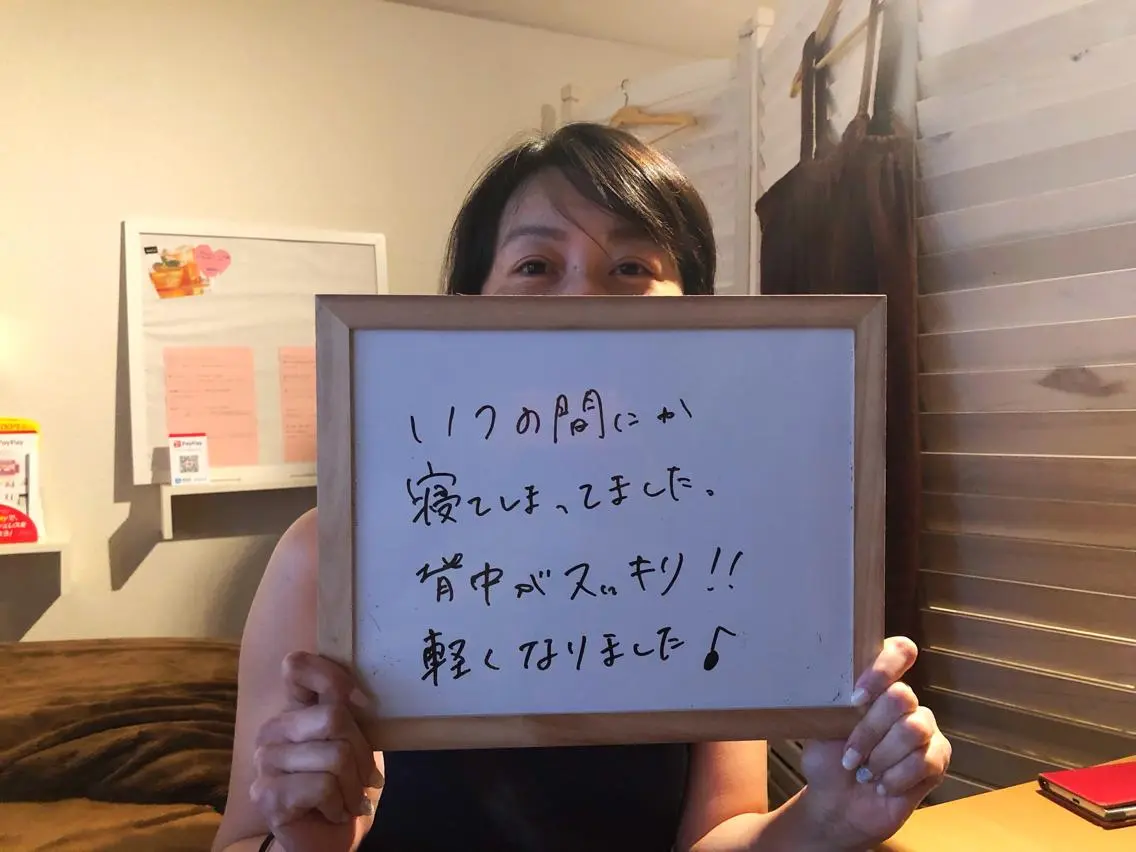 いつの間にか
寝てしまってました。
背中がスッキリ!!
軽くなりました♪
PayPay
PayPay